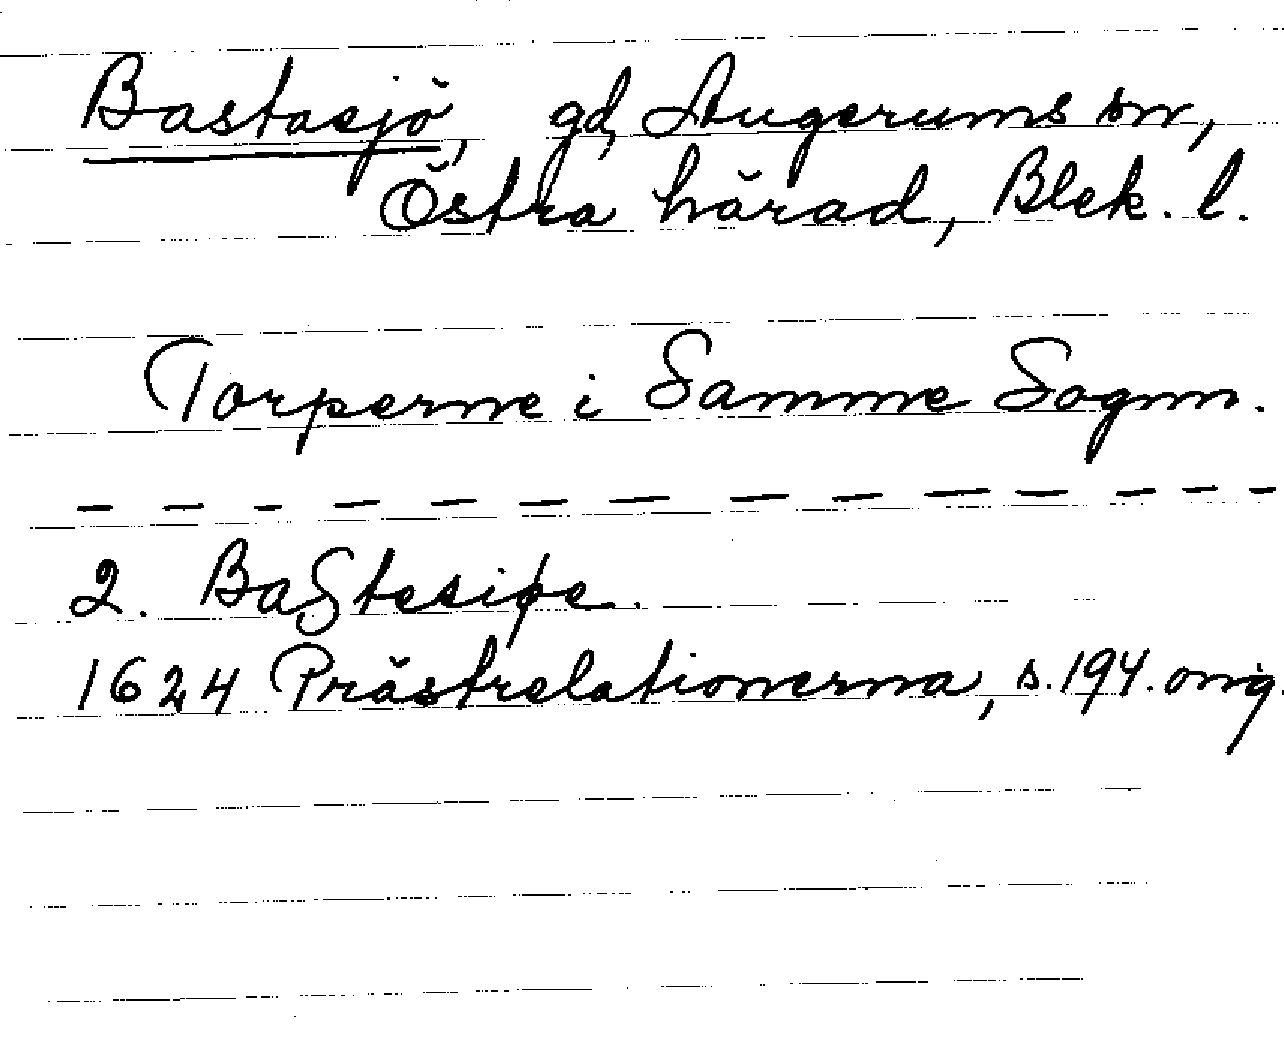 Bastasjö, gd, Augerums sn,
Östra härad, Blek. l.
Torperne i Samme Sognn.
— — — — — — — — — — — — — —
2. BaStesiøe.
1624 Prästrelationerna, s. 194. orig.